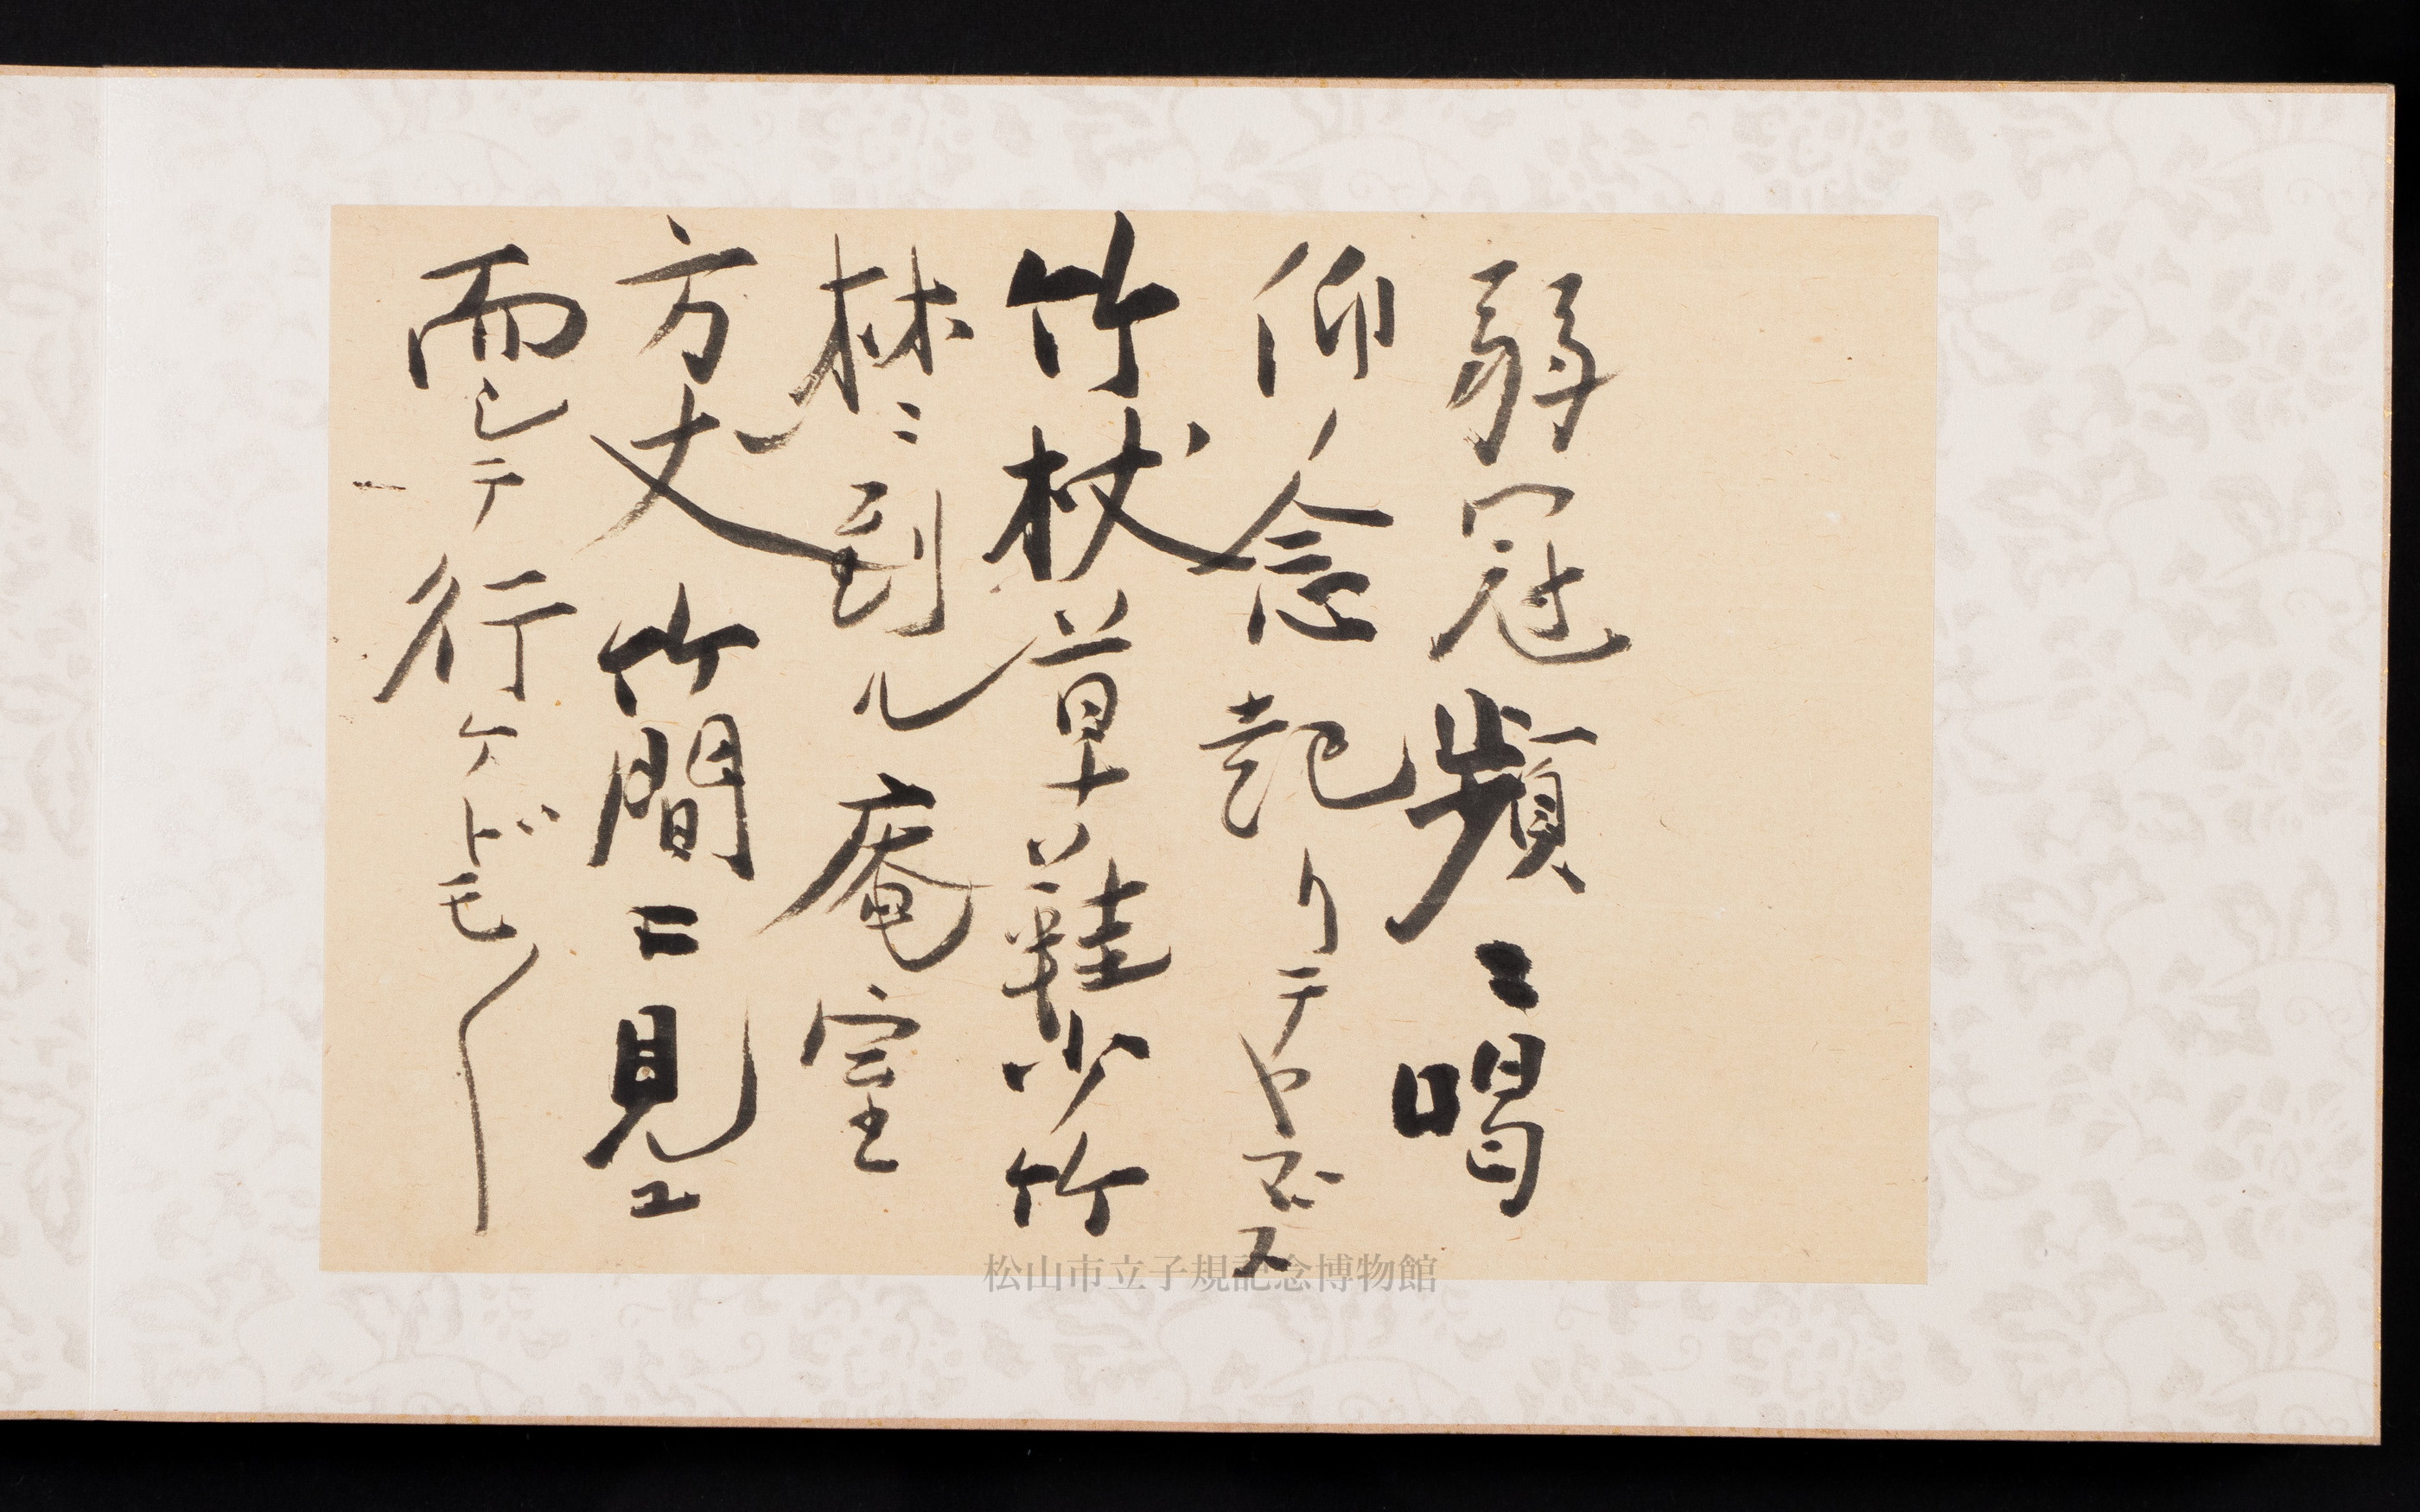 弱冠頻ニ喝
仰ノ念起リテヤマズ
竹杖草鞋少竹
林ニ到ル庵室
方丈竹間ニ見エ
而シテ行ケドモ〳〵
松山市立子規記念博物館